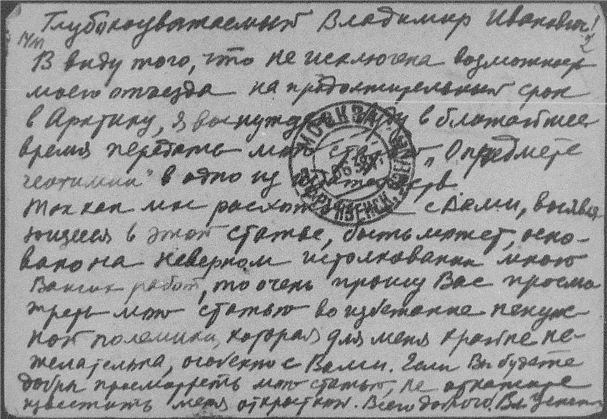 Глубокоуважаемый Владимир Иванович!
В виду того, что не исключена возможность
моего отъезда на продолжительный срок
в Арктику, я в ближайшее
время передать мою „О предмете
геохимии" в одно из
Так как мое с Вами, выявив
шееся в этой статье, быть может, осно-
вано на неверном истолковании мною
Ваших работ, то очень прошу Вас просмо
треть мою статью во избежание ненуж
ной полемики, которая для меня крайне не-
желательна, особенно с Вами. Если Вы будете
добры просмотреть мою статью, не откажите
известить меня открыткой. Всего доброго
МОСКВА